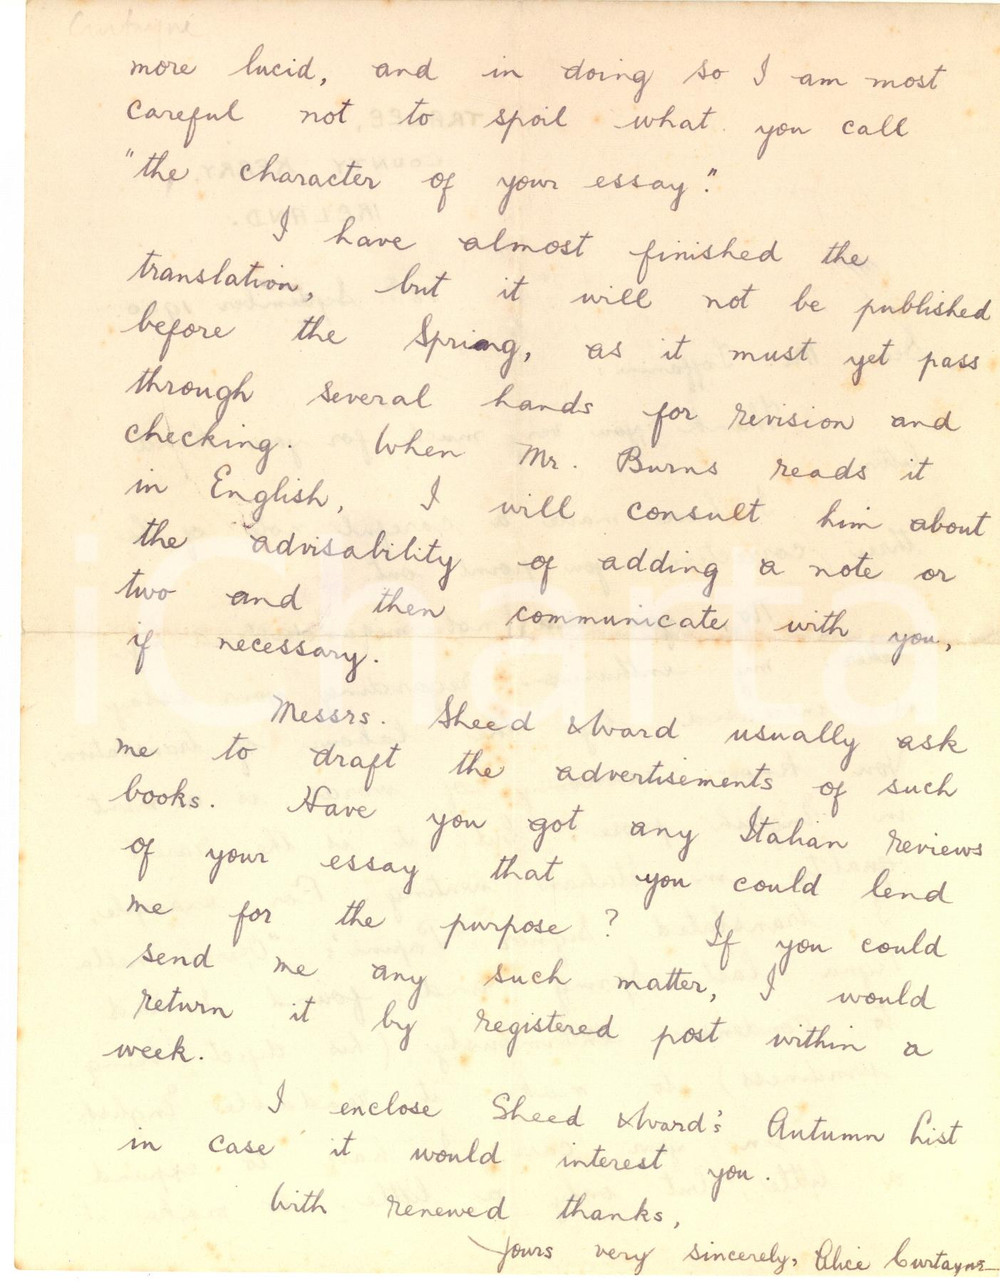 Curtayne
more lucid, and in doing so I am most
careful not to spoil what you call
"the character of your essay."
I have almost finished the
translation, but it will not be published
before the Spring, as it must yet pass
through several hands for revision and
checking. When Mr. Burns reads it
in English, I will consult him about
the advisability of adding a note or
two and then communicate with you,
if necessary.
Messrs. Sheed & Ward usually ask
me to draft the advertisements of such
books. Have you got any Italian reviews
of your essay that you could lend
me for the purpose? If you could
send me any such matter, I would
return it by registered post within a
week.
I enclose Sheed & Ward's Autumn List
in case it would interest you.
With renewed thanks,
Yours very sincerely, Alice Curtayne
iCharta